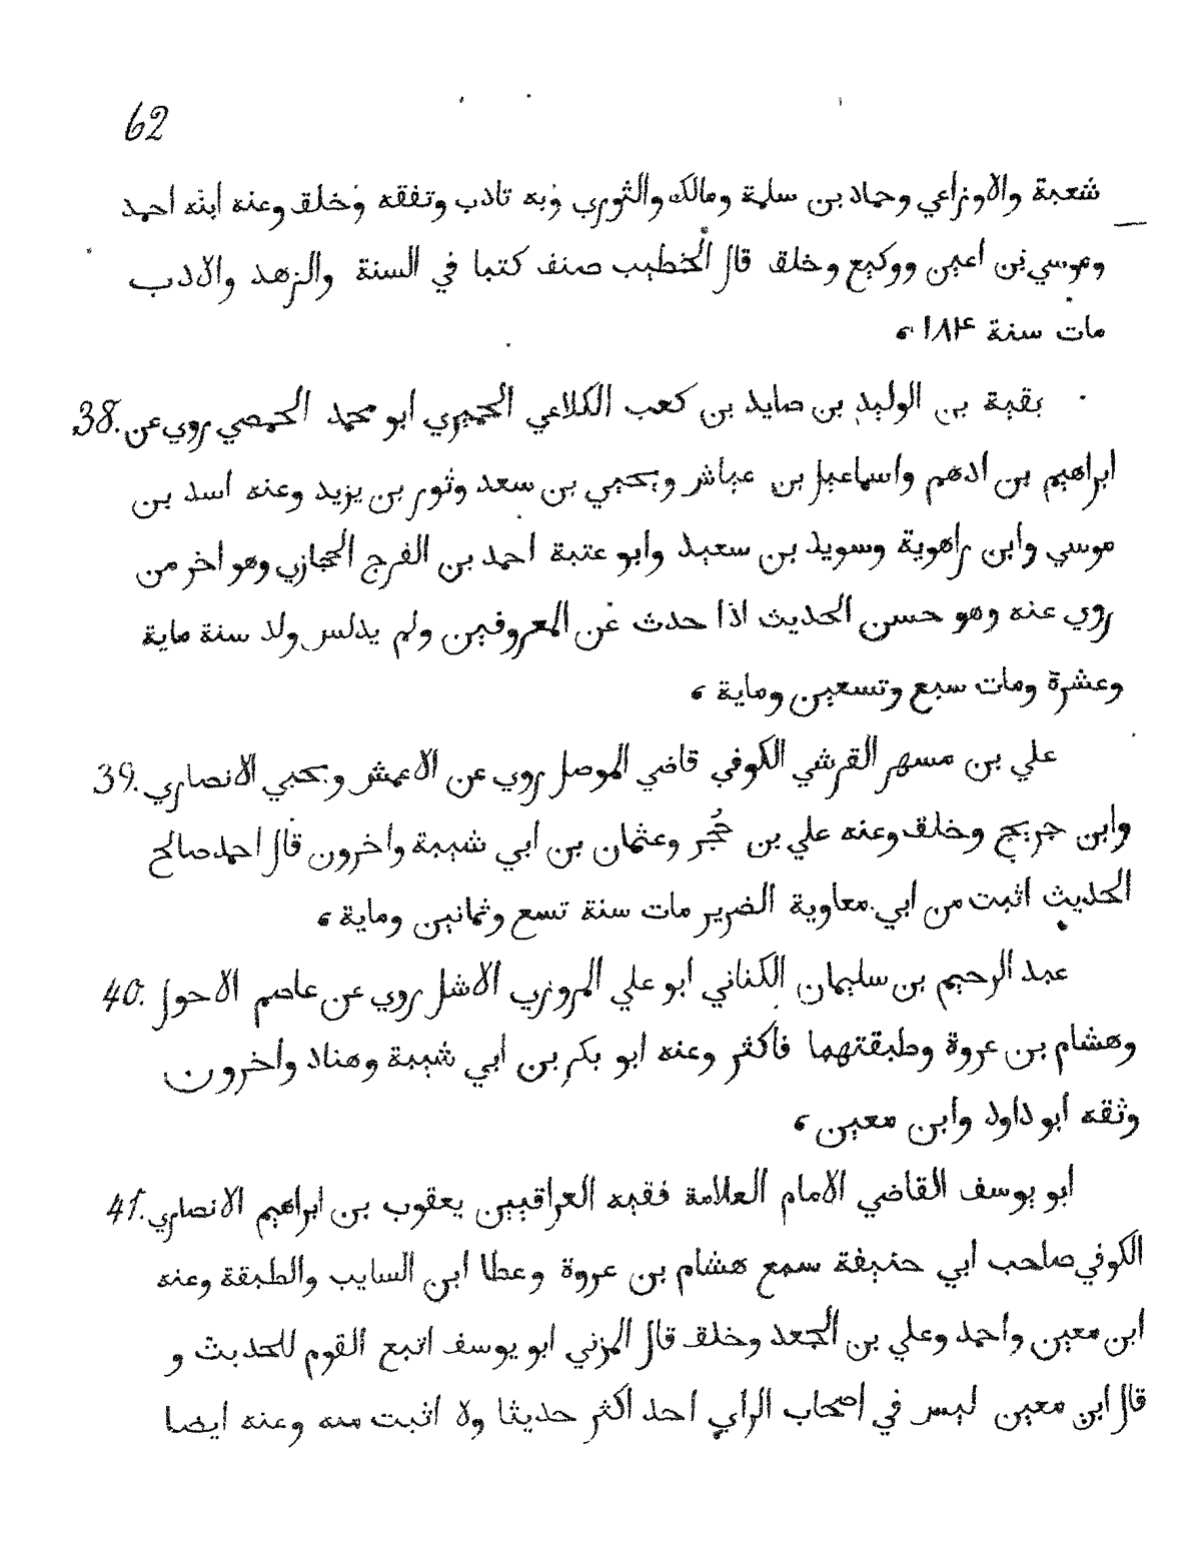 62
شعبة والاوزاعي وحماد بن سلمة ومالك والثوري وبه تادب وتفقه وخلق وعنه ابنه احمد
وموسي بن اعين ووكيع وخلق قال الخطيب صنف كتبا في السنة والزهد والادب
مات سنة ١٨٤،
38. بقية بن الوليد بن صايد بن كعب الكلاعي الحميري ابو محمد الحمصي روي عن
ابراهيم بن ادهم واسماعيل بن عياش ويحيي بن سعد وثور بن يزيد وعنه اسد بن
موسي وابن راهوية وسويد بن سعيد وابو عتبة احمد بن الفرج الحجازي وهو اخر من
روي عنه وهو حسن الحديث اذا حدث عن المعروفين ولم يدلس ولد سنة ماية
وعشرة ومات سبع وتسعين وماية،
39. علي بن مسهر القرشي الكوفي قاضي الموصل روي عن الاعمش ويحيي الانصاري
وابن جريج وخلق وعنه علي بن حُجر وعثمان بن ابي شيبة واخرون قال احمد صالح
الحديث اثبت من ابي معاوية الضرير مات سنة تسع وثمانين وماية،
40. عبد الرحيم بن سليمان الكناني ابو علي المروزي الاشل روي عن عاصم الاحول
وهشام بن عروة وطبقتهما فاكثر وعنه ابو بكر بن ابي شيبة وهناد واخرون
وثقه ابو داود وابن معين،
41. ابو يوسف القاضي الامام العلامة فقيه العراقيين يعقوب بن ابراهيم الانصاري
الكوفي صاحب ابي حنيفة سمع هشام بن عروة وعطا ابن السايب والطبقة وعنه
ابن معين واحمد وعلي بن الجعد وخلق قال المزني ابو يوسف اتبع القوم للحديث و
قال ابن معين ليس في اصحاب الراي احد اكثر حديثا ولا اثبت منه وعنه ايضا